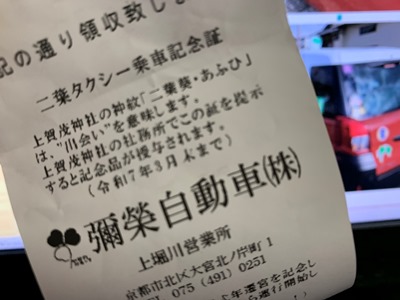 記の通り領収致しま
二葉タクシー乗車記念証
上賀茂神社の神紋「二葉葵・あふひ」
は、"出会い"を意味します。
上賀茂神社の社務所でこの証を提示
すると記念品が授与されます。
(令和7年3月末まで)
彌榮自動車㈱
上堀川営業所
京都市北区大宮北ノ岸町1
075(491)0251
年遷宮を記念し
運行開始し